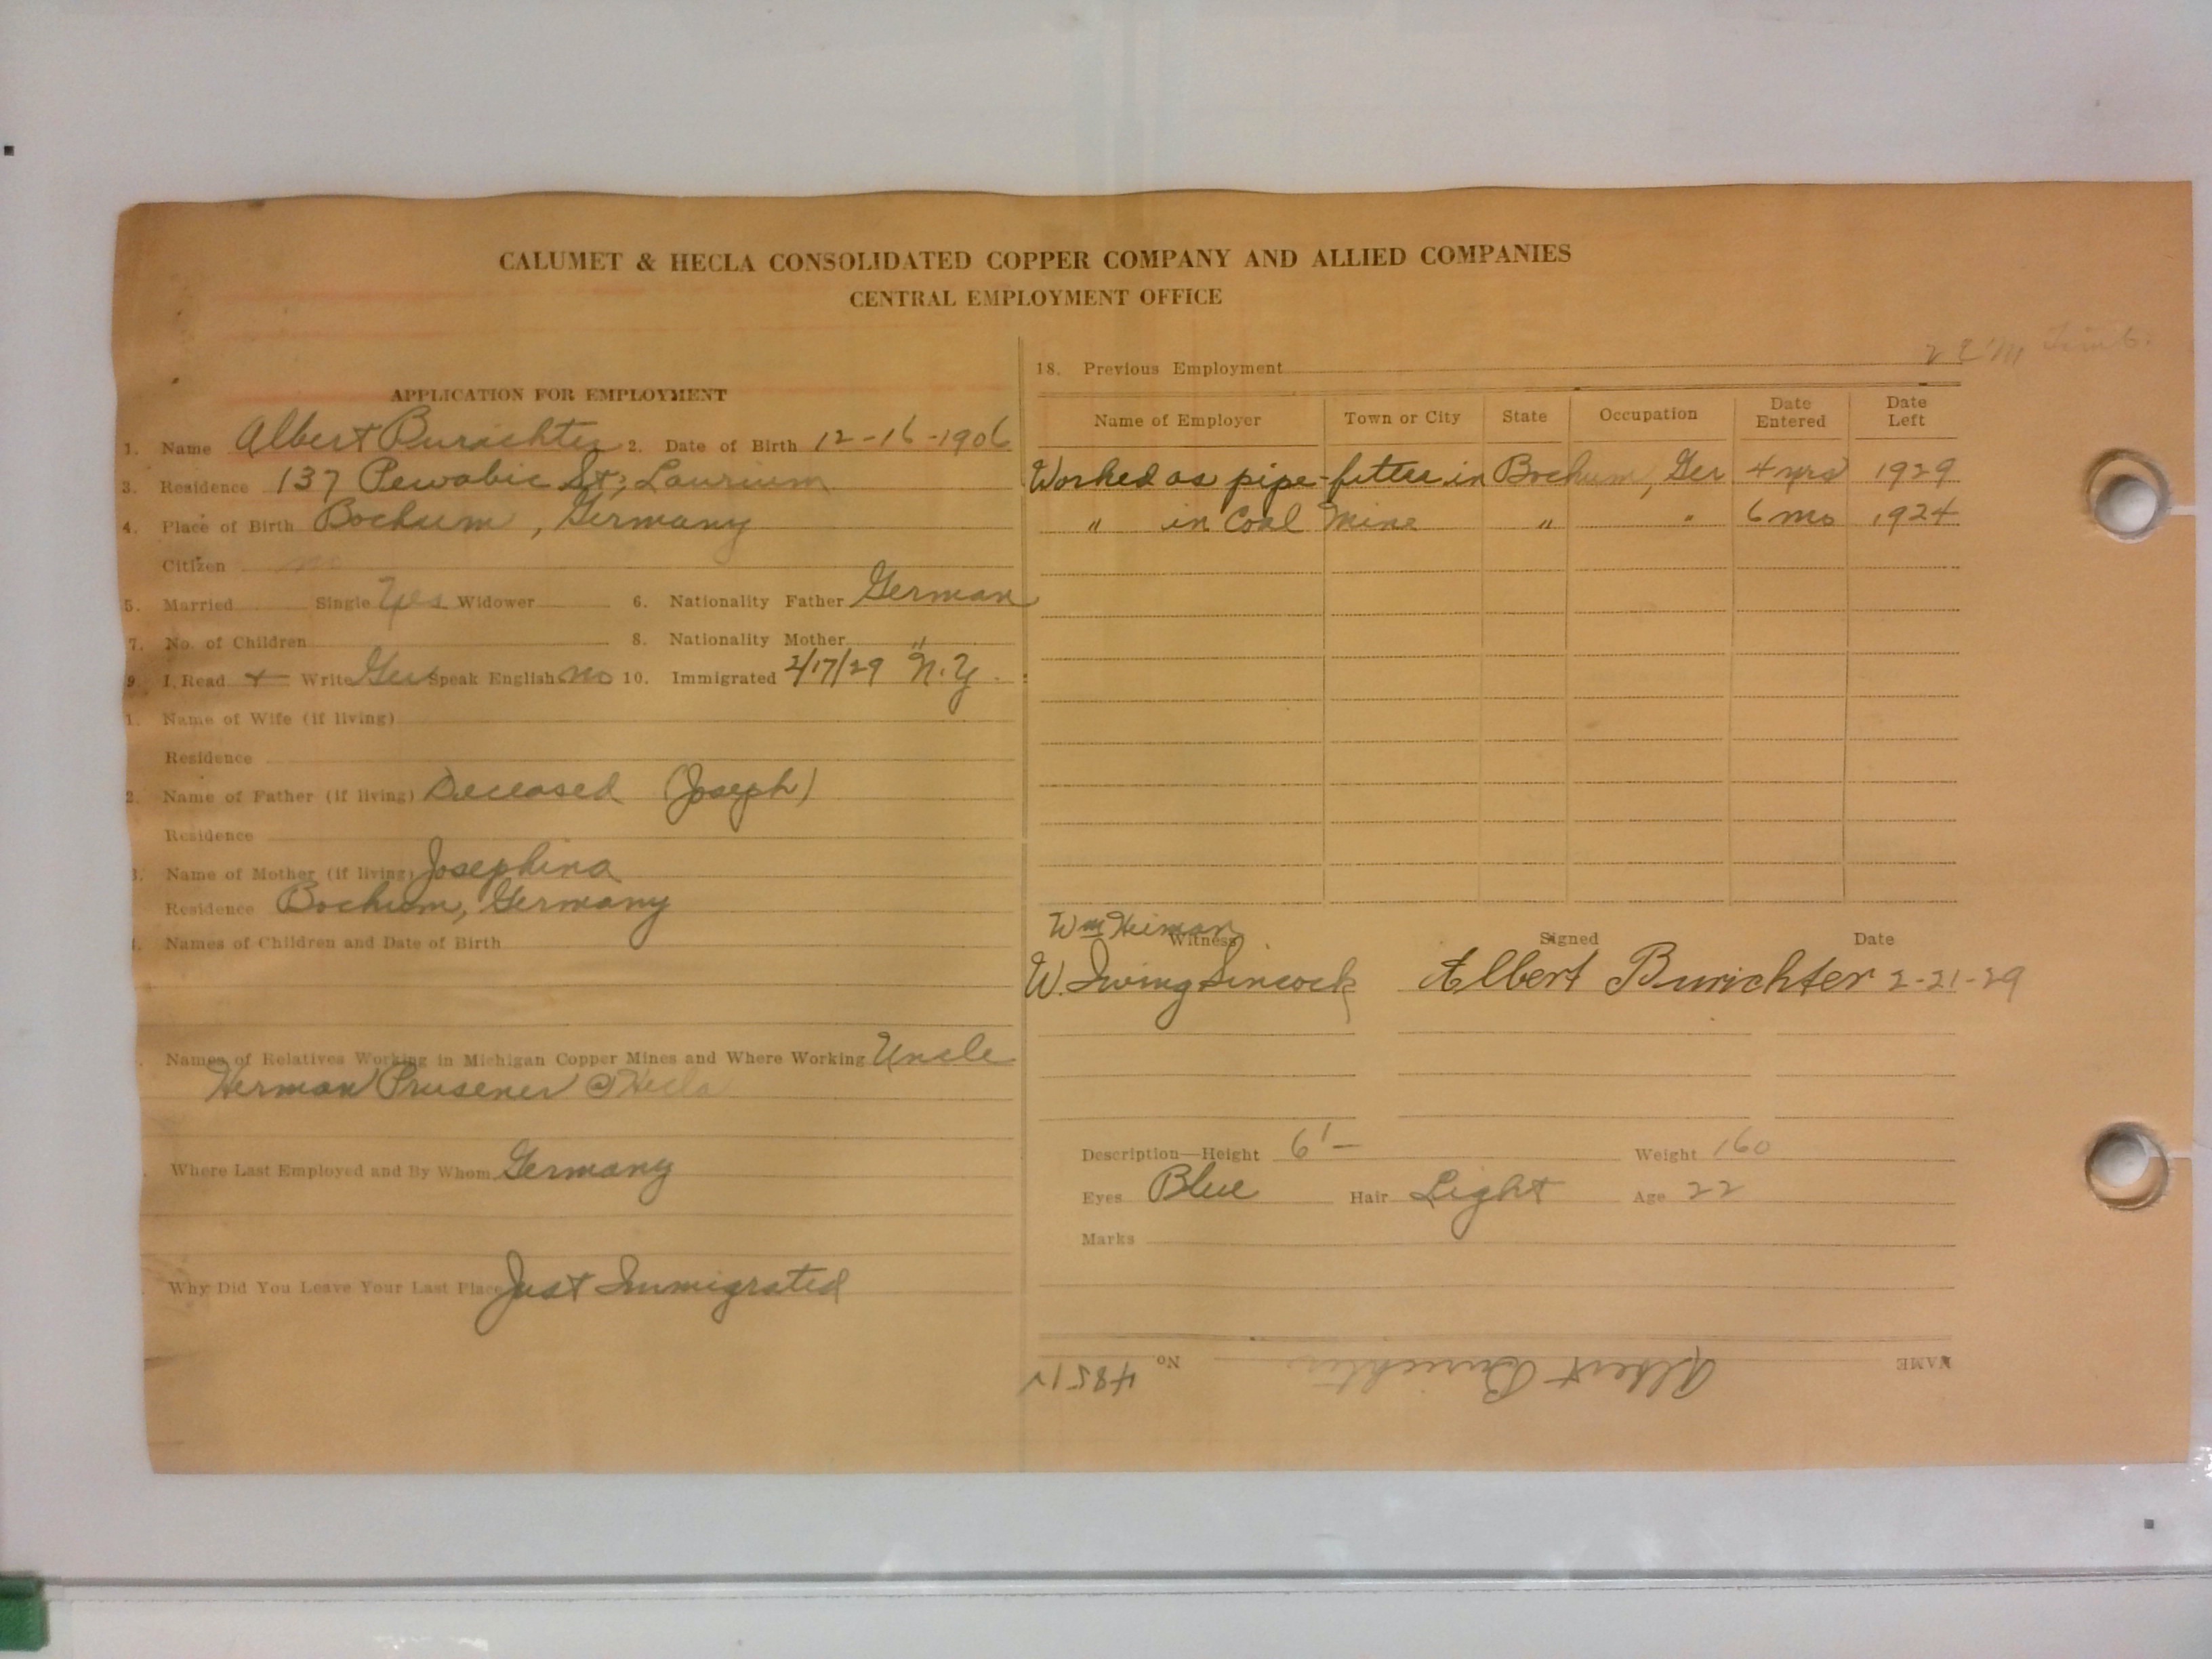 CALUMET & HECLA CONSOLIDATED COPPER COMPANY AND ALLIED COMPANIES
CENTRAL EMPLOYMENT OFFICE
APPLICATION FOR EMPLOYMENT
1. Name Albert Burichter 2. Date of Birth 12-16-1906
3. Residence 137 Pewabic St; Laurium
4. Place of Birth Bochum, Germany
Citizen no
5. Married Single Yes Widower 6. Nationality Father German
7. No. of Children 8. Nationality Mother "
9. I Read + Write Ger Speak English no 10. Immigrated 2/17/29 N.Y.
1. Name of Wife (if living)
Residence
2. Name of Father (if living) Deceased (Joseph)
Residence
3. Name of Mother (if living) Josephina
Residence Bochum, Germany
Names of Children and Date of Birth
Names of Relatives Working in Michigan Copper Mines and Where Working Uncle
Herman Prusener @ Hecla
Where Last Employed and By Whom Germany
Why Did You Leave Your Last Place Just Immigrated
18. Previous Employment
Name of Employer Town or City State Occupation Date Entered Date Left
Worked as pipe-fitter in Bochum, Ger 4 yrs 1929
" in Coal Mine " " 6 mo 1924
Wm Heiman
Witness Signed Date
W. Irving Sincock Albert Burichter 2-21-29
Description—Height 6'— Weight 160
Eyes Blue Hair Light Age 22
Marks
NAME Albert Burichter No 48512